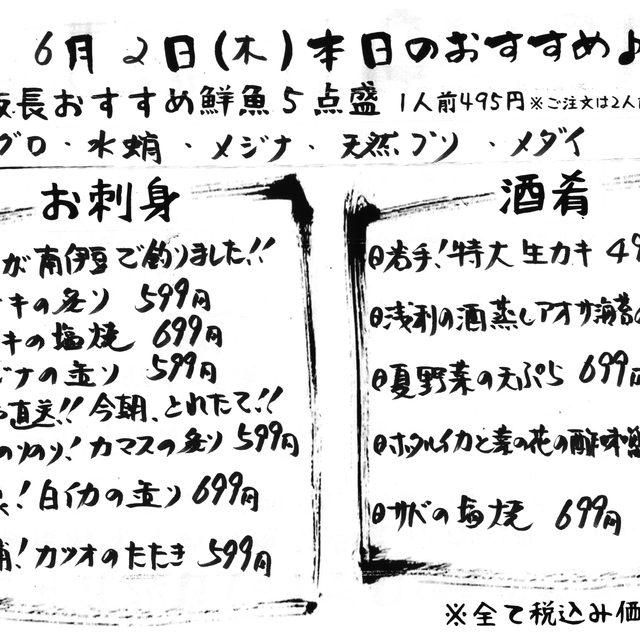 6月2日(木)本日のおすすめ♪
長おすすめ鮮魚5点盛 1人前495円※ご注文は2人
グロ・水蛸・メジナ・天然ブリ・メダイ
お刺身
が南伊豆で釣りました!!
キの炙り 599円
キの塩焼 699円
ジナの炙り 599円
直送!!今朝、とれたて!!
のりのり!カマスの炙り 599円
!白イカの炙り 699円
!カツオのたたき 599円
酒肴
岩手!特大生カキ 49
浅利の酒蒸しアオサ海苔の
夏野菜の天ぷら 699円
ホタルイカと菜の花の酢味噌
サバの塩焼 699円
※全て税込み価